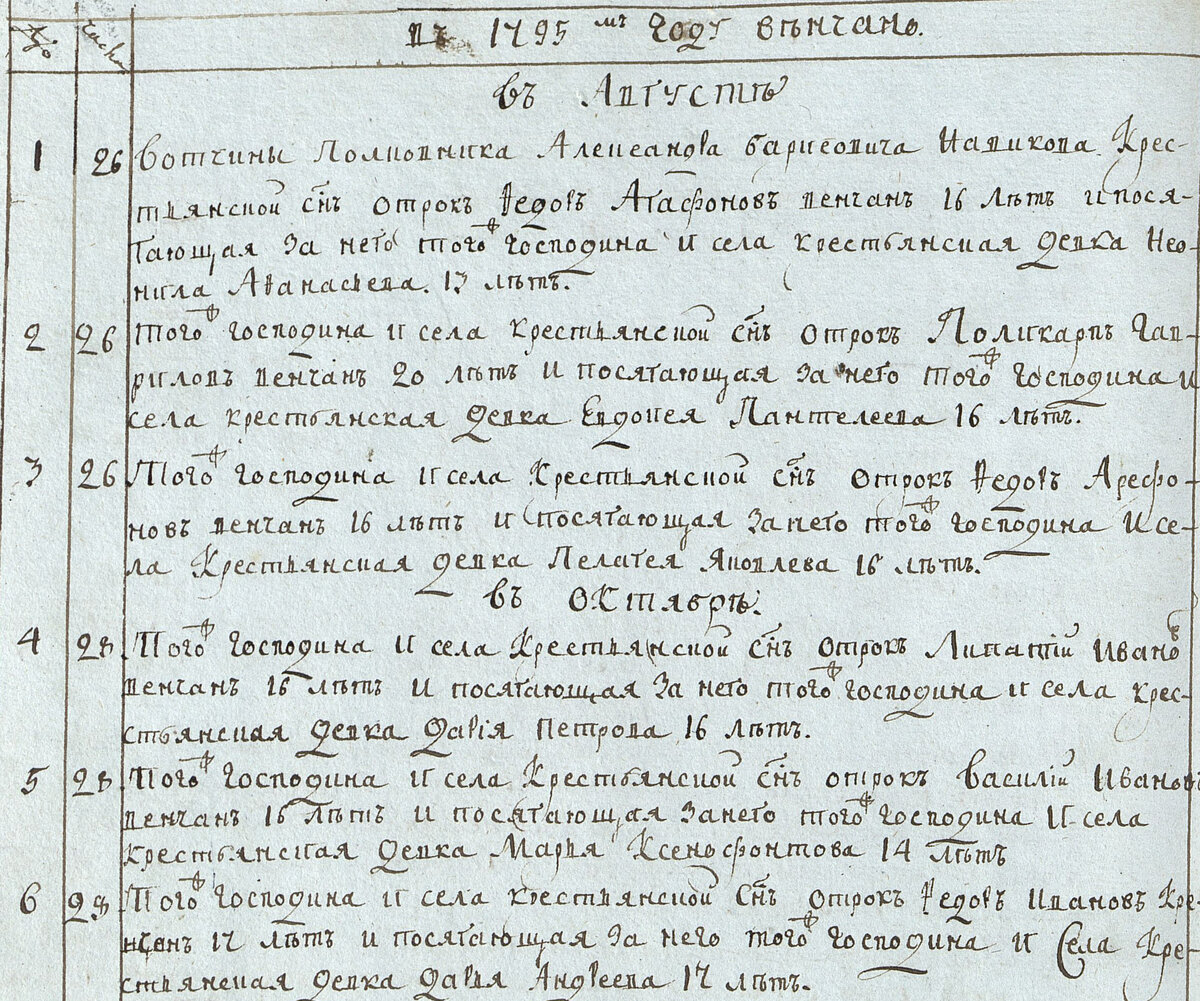 Въ 1795 мъ году венчано.
числа
въ Августѣ
1 26 вотчины Полковника Александра барисовича Навикова Крес-
тьянской снъ отрокъ Ѳедоръ Агафоновъ венчан 16 лѣтъ и пося-
гающая за него тогоѳ господина и села крестьянская девка Нео-
нила Аѳанасьева. 13 лѣтъ.
2 26 того господина и села крестьянской снъ отрокъ Поликарпъ Гав-
риловъ венчанъ 20 лѣтъ и посягающая за него того господина и
села крестьянская девка Евдокея Пантелеева 16 лѣтъ.
3 26 Того господина и села Крестьянской снъ отрокъ Ѳедоръ Арефо-
новъ венчанъ 16 лѣтъ и посягающая за него того господина и се-
ла Крестьянская девка Пелагея Яковлева 16 лѣтъ.
въ октябрѣ.
4 28 Того господина и села Крестьянской снъ отрокъ Липатій Ивановъ
венчанъ 16 лѣтъ и посягающая за него того господина и села крес-
стьянская девка Дарія Петрова 16 лѣтъ.
5 28 Того господина и села Крестьянской снъ отрокъ Василій Иванов
венчанъ 16 лѣтъ и посягающая за него того господина и села
крестьянская девка Марья Ксенофонтова 14 лѣтъ
6 28 Того господина и села крестьянской снъ отрокъ Ѳедоръ Ивановъ
17 лѣтъ и посягающая за него того господина и Села Кре-
стьянская девка Дарья Андреева 17 лѣтъ.